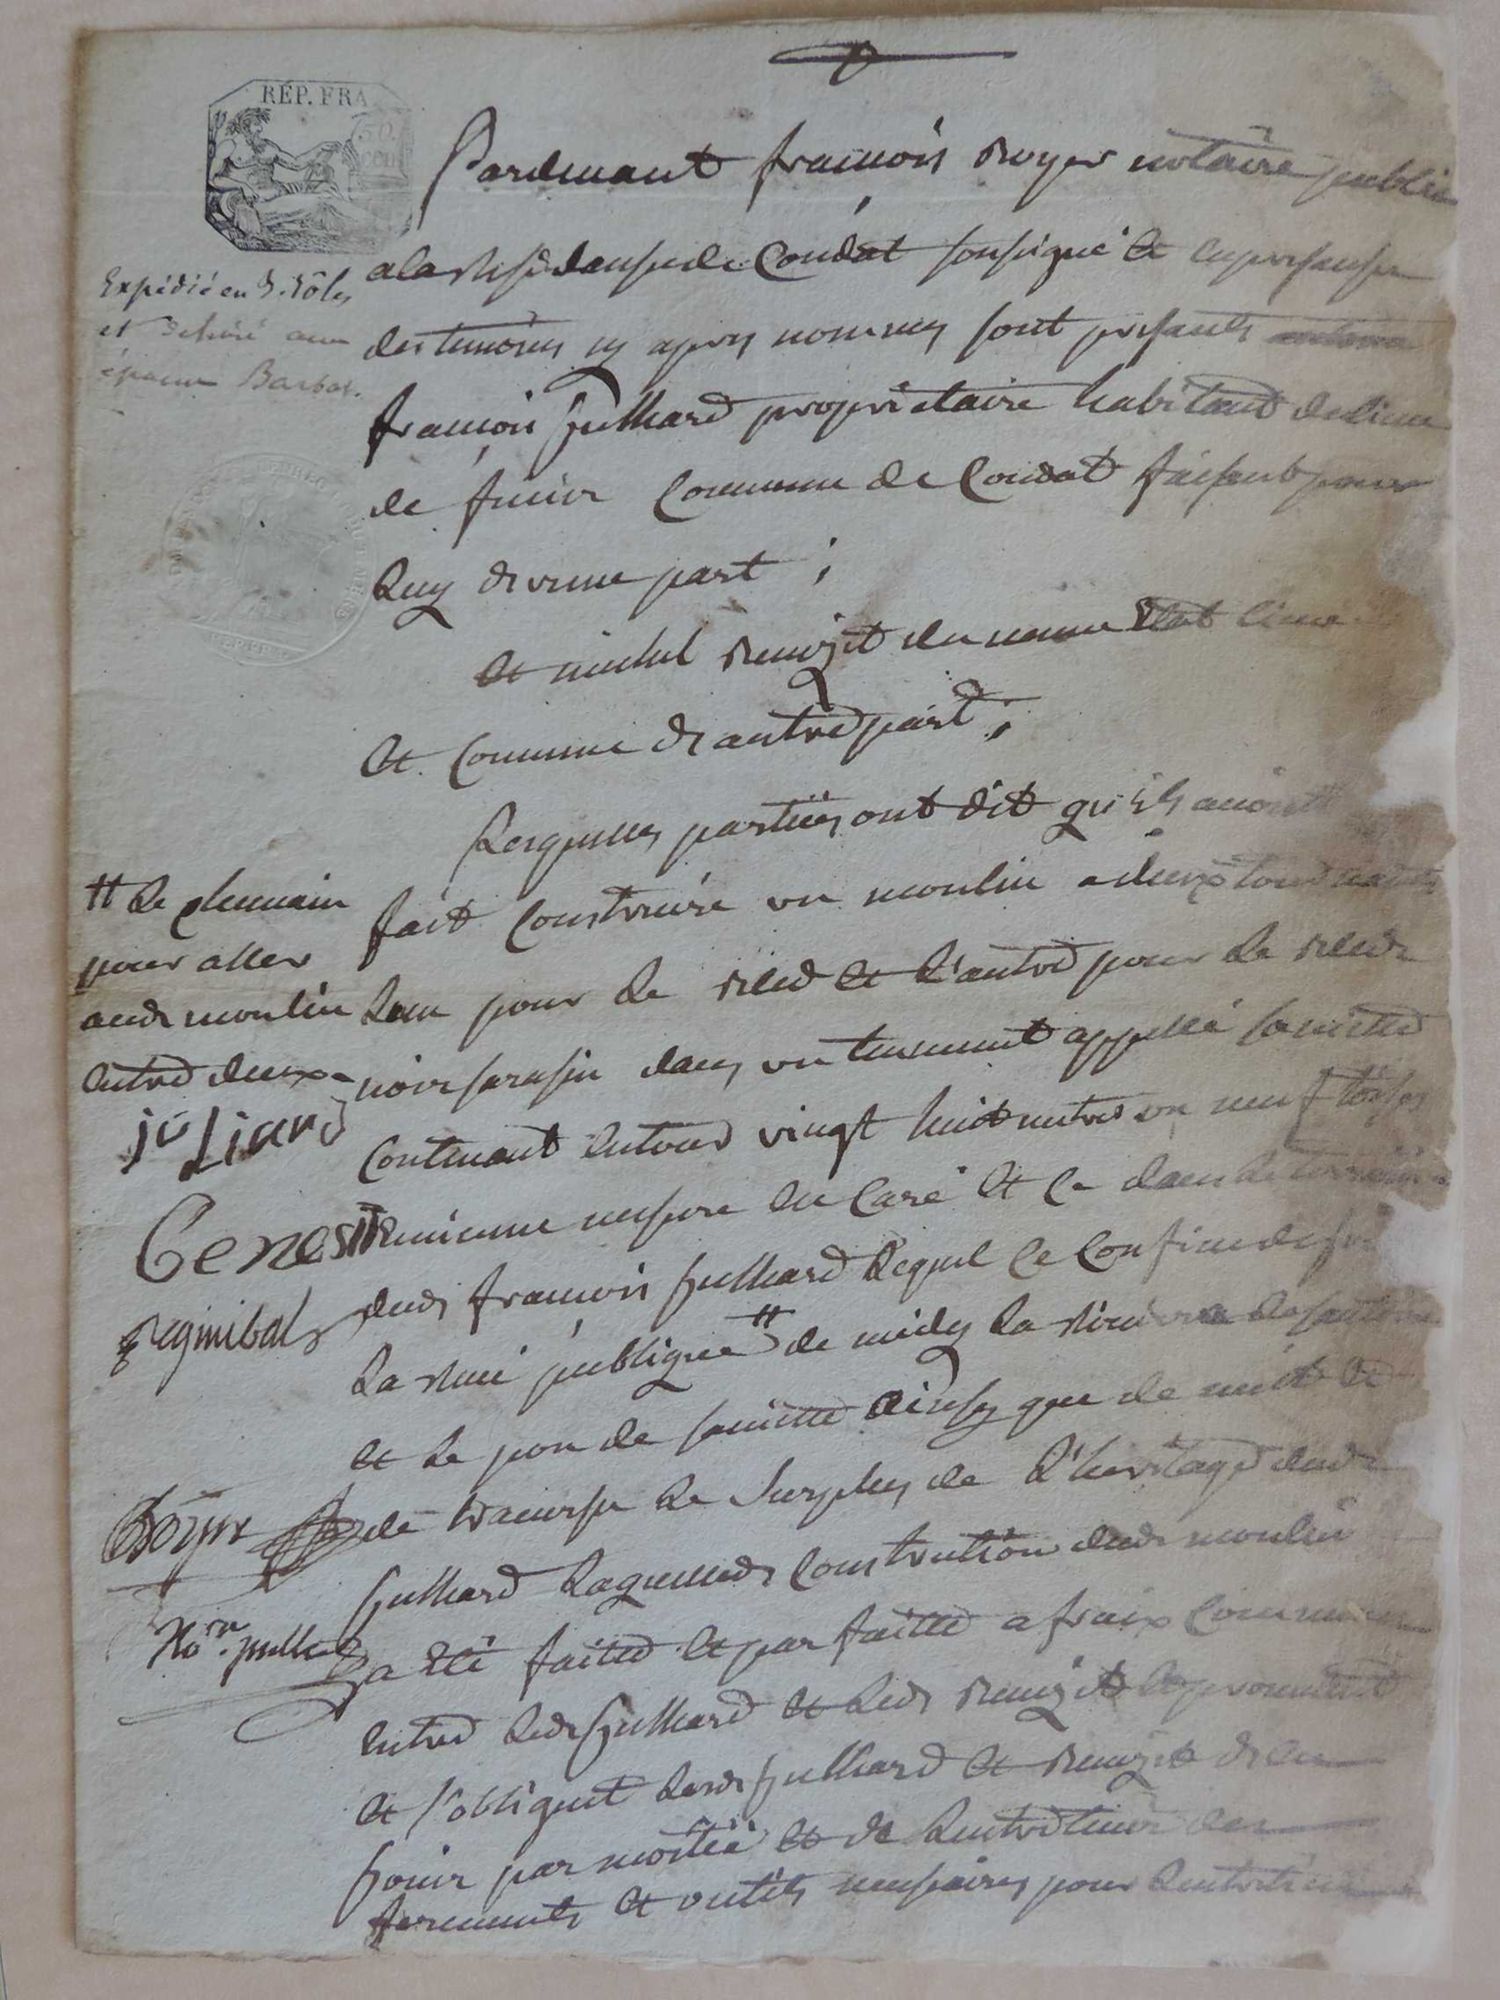 RÉP. FRA
50
CEN
Pardevant françois Royer notaire public
a la residansede Condat sousigné et en presansse
des temoins cy apres nommes sont presants
françois Julhard proprietaire habitant du lieu
de commune de Condat faisant pour
luy d'vune part ;
et michel du meme Etat lieu
et commune d'autre part ;
Lesquelles parties ont dit qu'ils avoient
fait construire un moulin a deux tournants
Lun pour le bled et L'autre pour le bled
noir sarasin dans un tenement appellé
contenant entour vingt huit metres ou neuf toises
encienne mesure du Caré et ce dans le terrain
dudt françois Julhard lequel ce confine de
La rue publique # de midy La riviere
et le pon de ainsy que de nuit et
de traverse le surplus de L'heritage dudt
Julhard Laquelledt constrution dudt moulin
a été faitte et parfaitte a fraix communs
entre ledt Julhard et ledt et promettent
et s'obligent lesdt Julhard et d'en
jouir par moitié et de l'entretenir des
ferements et outils nessaires pour
Expédié en 3. rôles
et délivré aux
époux Barbat.
# le chemain
pour aller
audt moulin
entre deux
juLiard
Genestte
Royer
No.re public